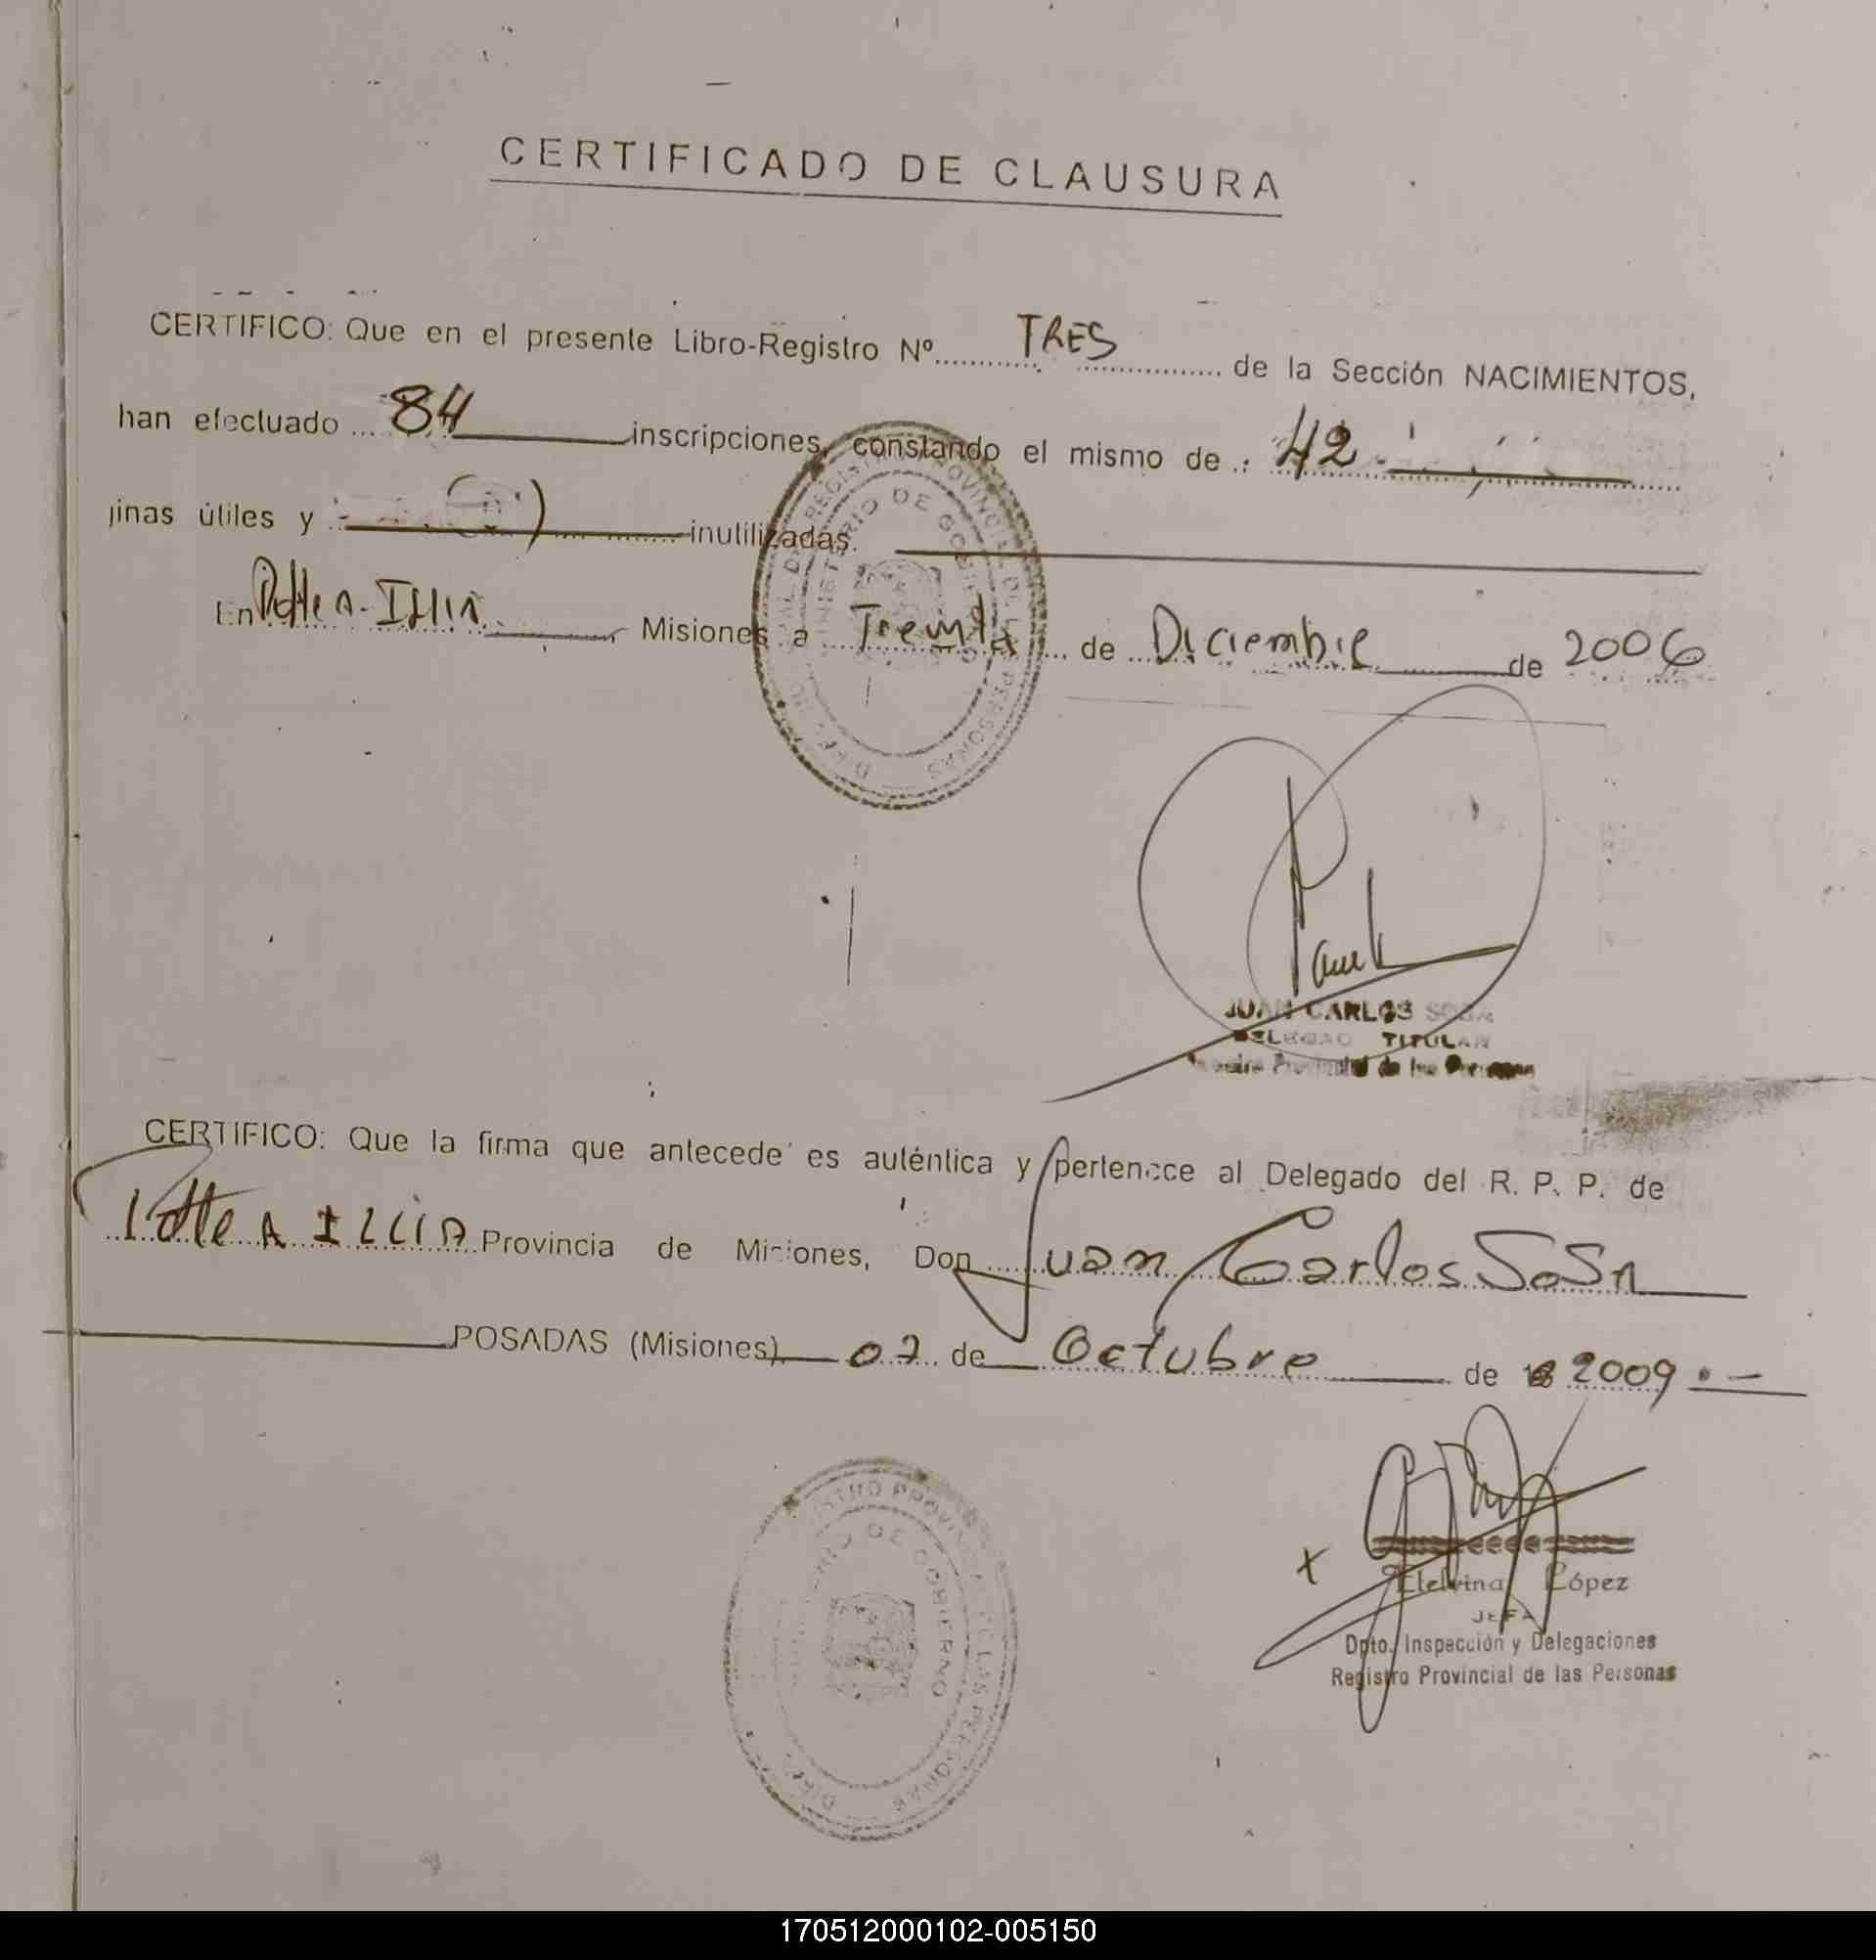 CERTIFICADO DE CLAUSURA
CERTIFICO: Que en el presente Libro-Registro Nº TRES de la Sección NACIMIENTOS,
han efectuado 84 inscripciones, constando el mismo de 42
jinas útiles y inutilizadas.
En Pdte A. Illia, Misiones a Treinta de Diciembre de 2006
JUAN CARLOS SOSA
DELEGADO TITULAR
Provincial de las Personas
CERTIFICO: Que la firma que antecede es auténtica y pertenece al Delegado del R. P. P. de
Pdte A ILLIA Provincia de Misiones, Don Juan Carlos SoSA
POSADAS (Misiones) 07 de Octubre de 2009.-
MINISTERIO DE GOBIERNO
López
JEFA
Dpto. Inspección y Delegaciones
Registro Provincial de las Personas
170512000102-005150